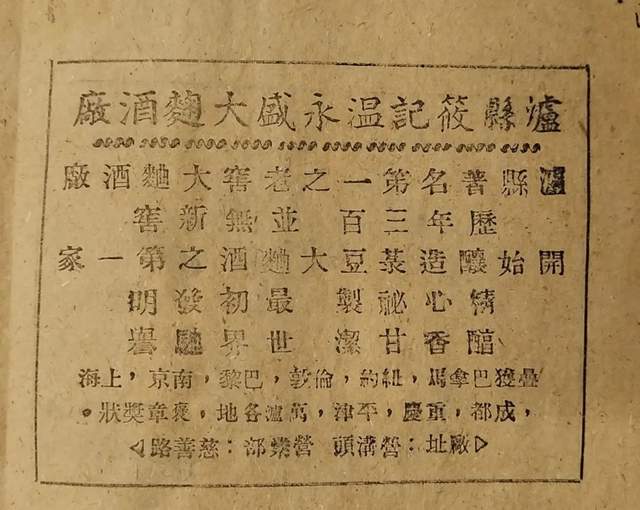 瀘縣筱記温永盛大麴酒廠
瀘縣著名第一之老窖大麯酒廠
歷年三百 並無新窖
開始釀造菉豆大麯酒之第一家
精心祕製 最初發明
醕香甘潔 世界馳譽
疊獲巴拿馬,紐約,倫敦,巴黎,南京,上海
,成都,重慶,平津,萬瀘各地,褒章獎狀。
廠址:營溝頭 營業部:慈善路